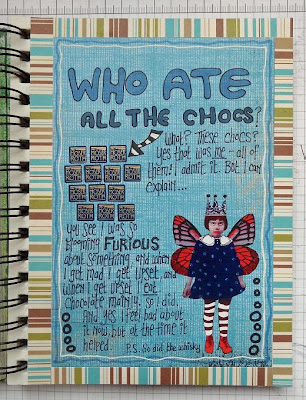 WHO ATE
ALL THE CHOCS?
What? These chocs?
Yes that was me – all of
them! I admit it. But I can
explain...
You see I was so
FURIOUS
about something and when
I get mad I get upset and
when I get upset I eat.
Chocolate mainly. So I did.
And yes I feel bad about
it now but at the time it
helped.
P.S. So did the whisky